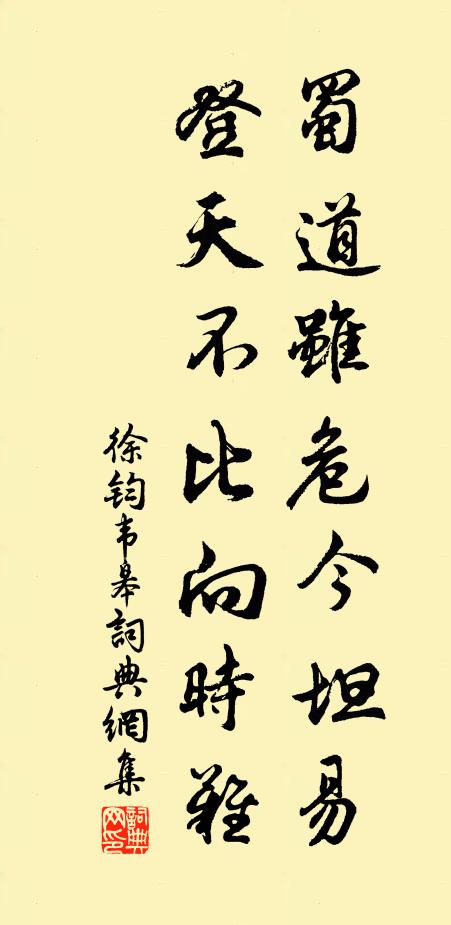 蜀道雖危今坦易
登天不比向時難
徐鈞韦皋詞典網集
詞典
网印